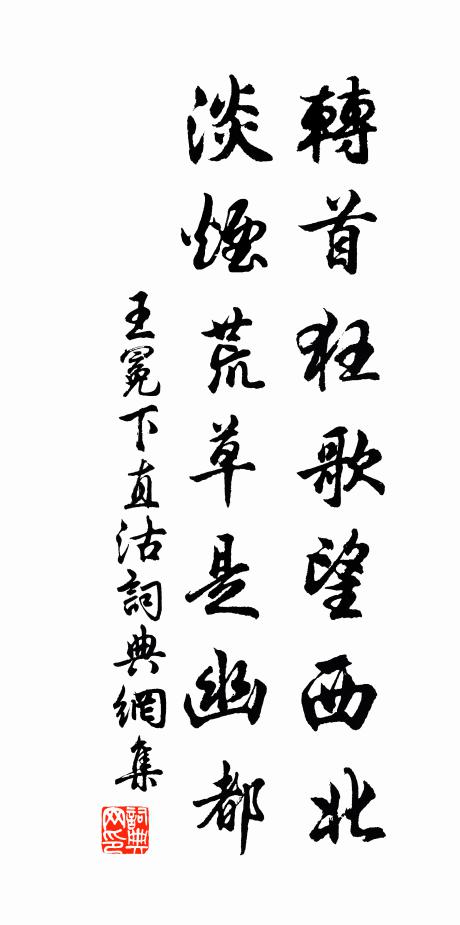 轉首狂歌望西北
淡煙荒草是幽都
王冕下直沽詞典網集
詞典
网印